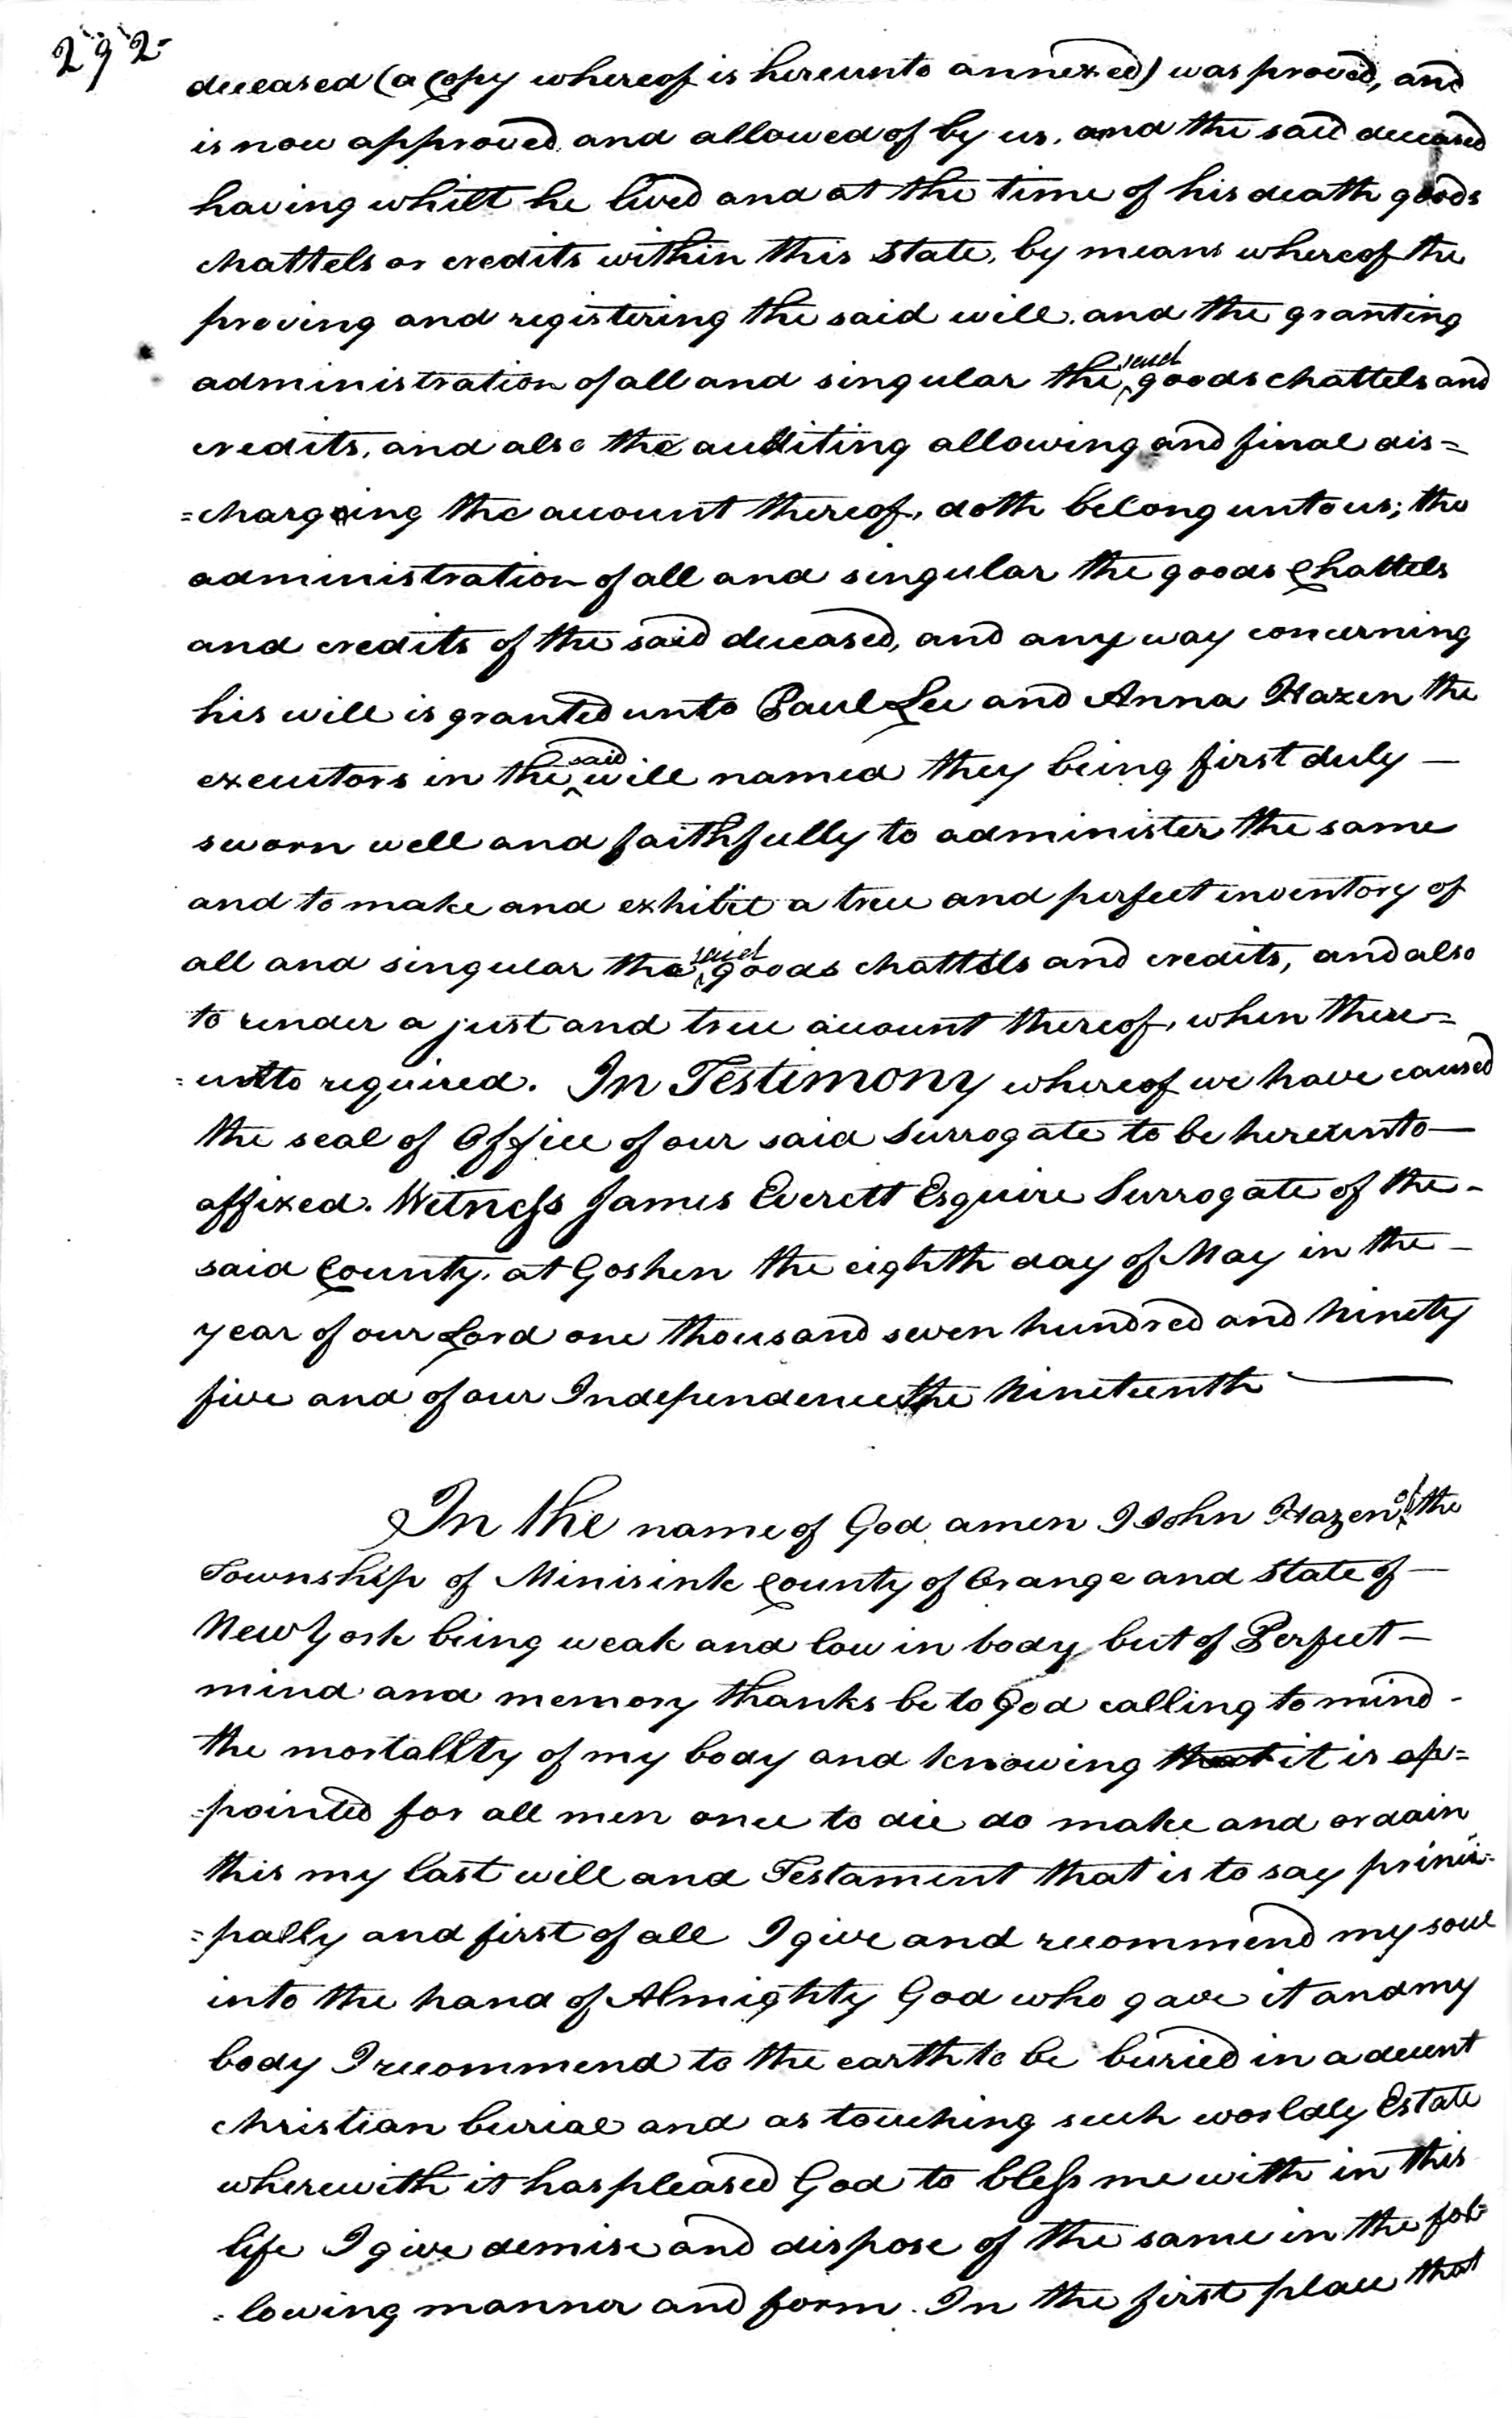 292-
deceased (a Copy whereof is hereunto annexed) was proved, and
is now approved and allowed of by us, and the said deceased
having whilt he lived and at the time of his death goods
chattels or credits within this State, by means whereof the
proving and registering the said will, and the granting
administration of all and singular the said goods chattels and
credits, and also the auditing allowing and final dis=
=chargeing the account thereof, doth belong unto us; the
administration of all and singular the goods Chattels
and credits of the said deceased, and any way concerning
his will is granted unto Paul Lee and Anna Hazen the
executors in the said will named they being first duly —
sworn well and faithfully to administer the same
and to make and exhibit a true and perfect inventory of
all and singular the said goods chattels and credits, and also
to render a just and true account thereof, when there=
=unto required. In Testimony whereof we have caused
the seal of Office of our said Surrogate to be hereunto —
affixed. Witness James Everett Esquire Surrogate of the -
said County, at Goshen the eighth day of May in the -
year of our Lord one thousand seven hundred and Ninety
five and of our Independence the Nineteenth ——
In the name of God amen I John Hazen of the
Township of Minisink County of Orange and State of —
New York being weak and low in body but of Perfect —
mind and memory thanks be to God calling to mind -
the mortallty of my body and knowing that it is ap=
=pointed for all men once to die do make and ordain
this my last will and Testament that is to say princi=
=pally and first of all I give and recommend my soul
into the hand of Almighty God who gave it and my
body I recommend to the earth to be buried in a decent
christian burial and as touching such worldly Estate
wherewith it has pleased God to bless me with in this
life I give demise and dispose of the same in the fol=
=lowing manner and form. In the first place that